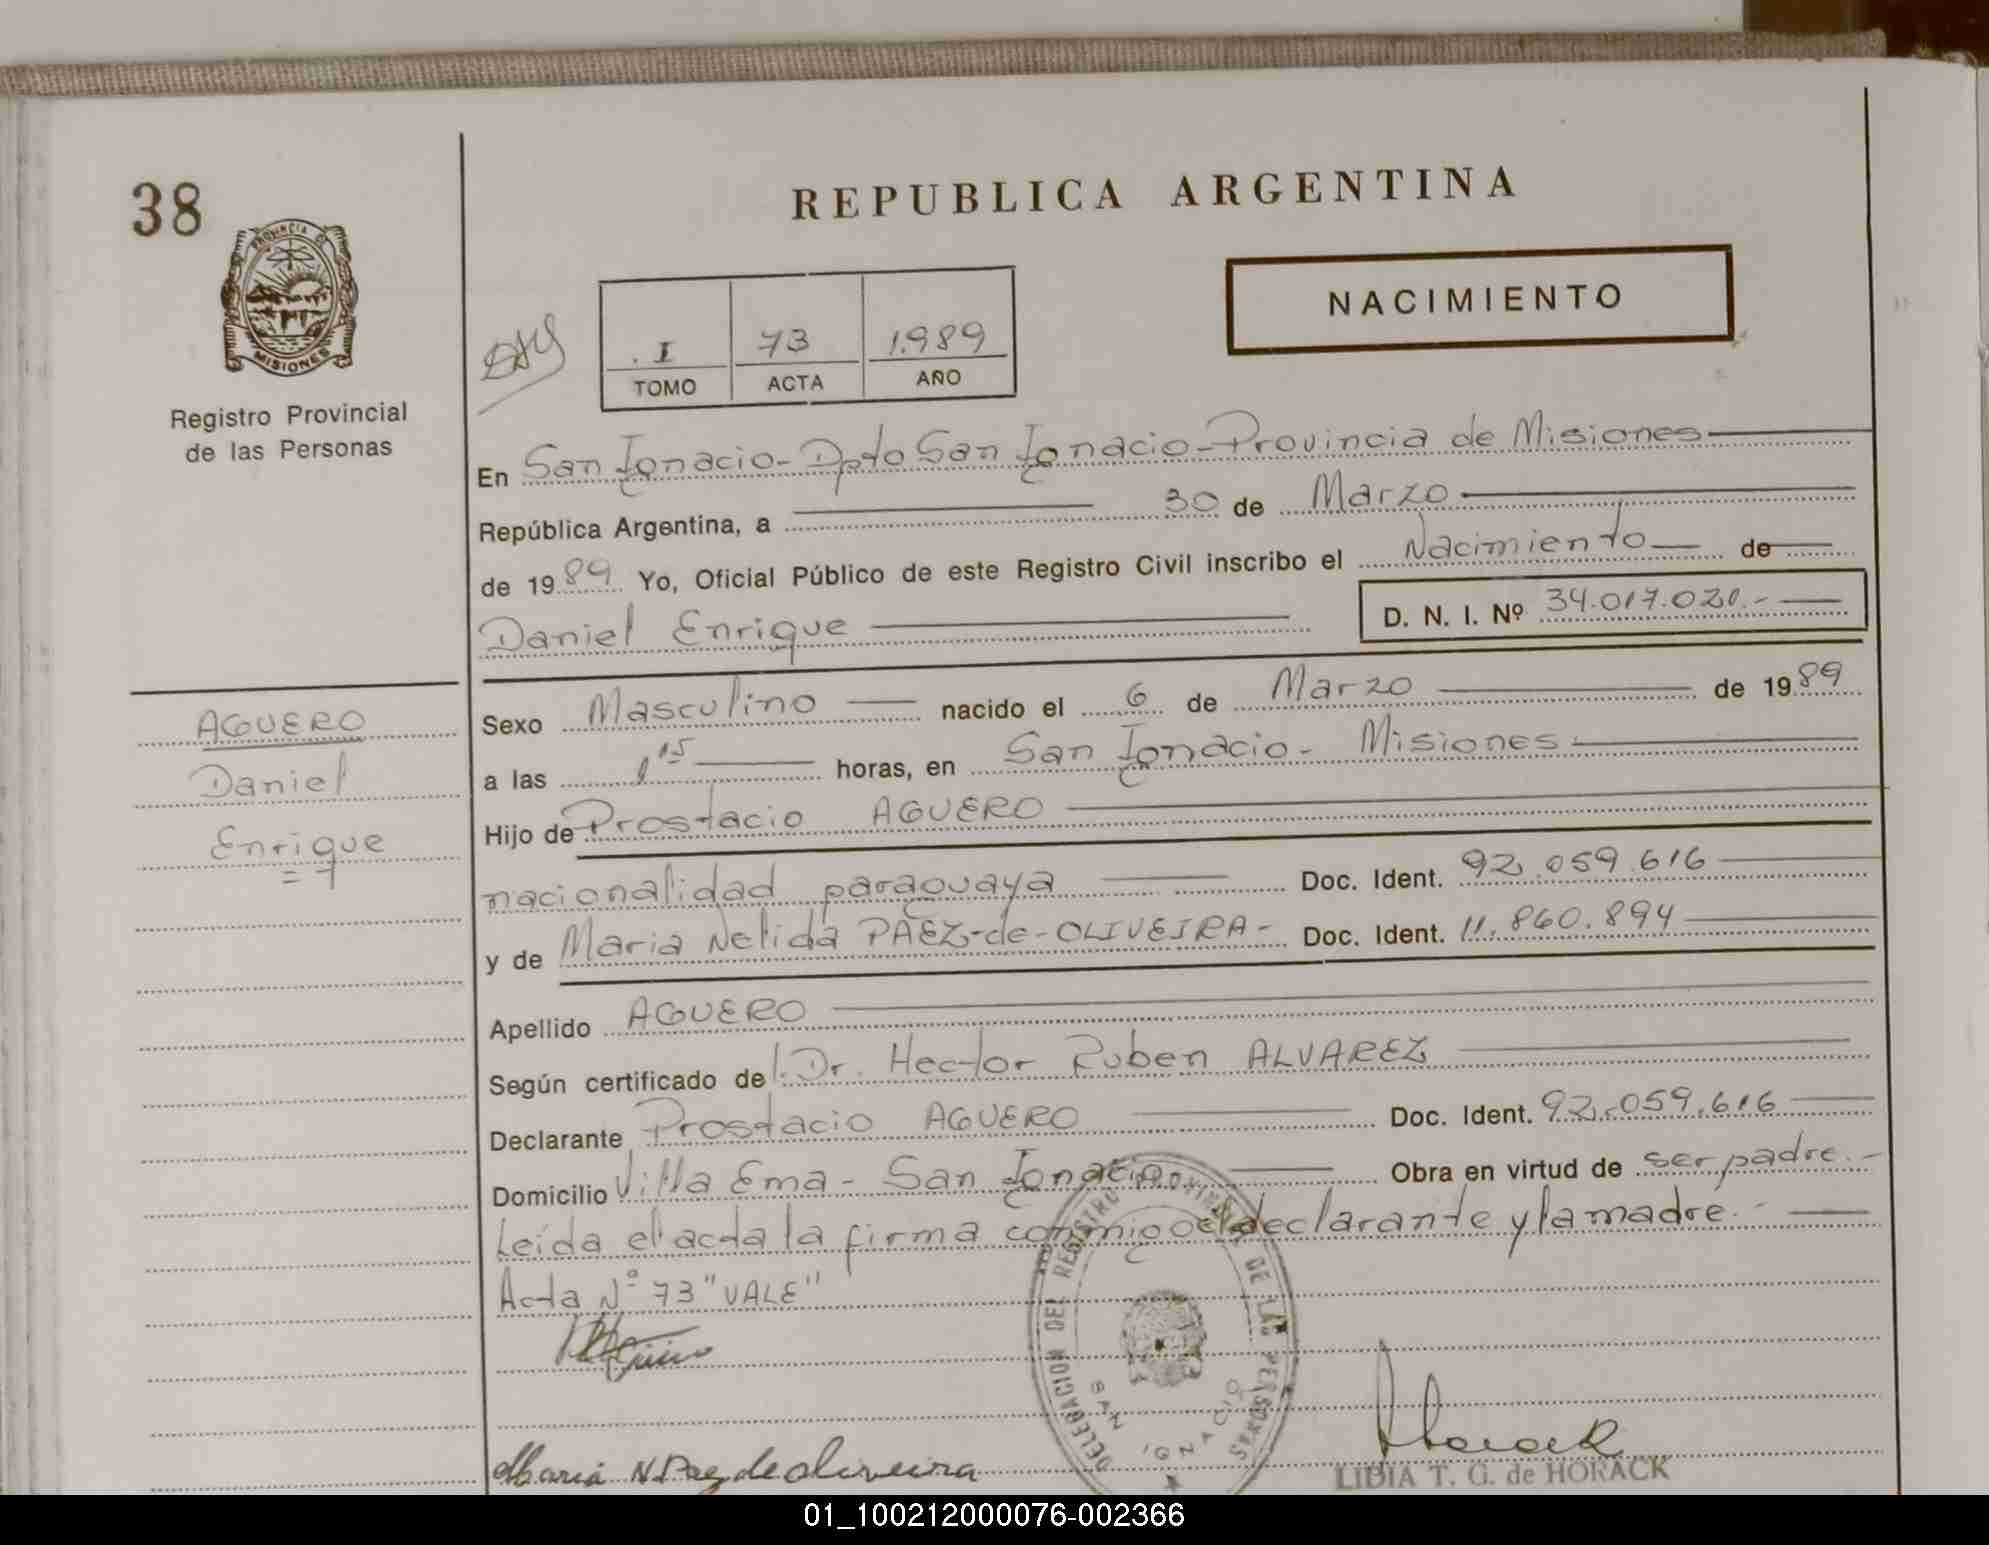 38
PROVINCIA DE
MISIONES
Registro Provincial
de las Personas
REPUBLICA ARGENTINA
NACIMIENTO
I 73 1.989
TOMO ACTA AÑO
En San Ignacio - Dpto San Ignacio - Provincia de Misiones
República Argentina, a 30 de Marzo
de 1989 Yo, Oficial Público de este Registro Civil inscribo el Nacimiento de
Daniel Enrique D. N. I. Nº 34.017.020.-
Sexo Masculino nacido el 6 de Marzo de 1989
a las 1 15 horas, en San Ignacio - Misiones
Hijo de Prostacio AGUERO
nacionalidad paraguaya Doc. Ident. 92.059.616
y de Maria Nelida PAEZ-de-OLIVEIRA- Doc. Ident. 11.860.894
Apellido AGUERO
Según certificado del Dr. Hector Ruben ALVAREZ
Declarante Prostacio AGUERO Doc. Ident. 92.059.616
Domicilio Villa Ema - San Ignacio Obra en virtud de ser padre.-
Leída el acta la firma conmigo el declarante y la madre.-
Acta Nº 73 "VALE"
AGUERO
Daniel
Enrique
DELEGACION DEL REGISTRO PROVINCIAL DE LAS PERSONAS
SAN IGNACIO
Maria N. Paez de oliveira
Horack
LIBIA T. G. de HORACK
01_100212000076-002366